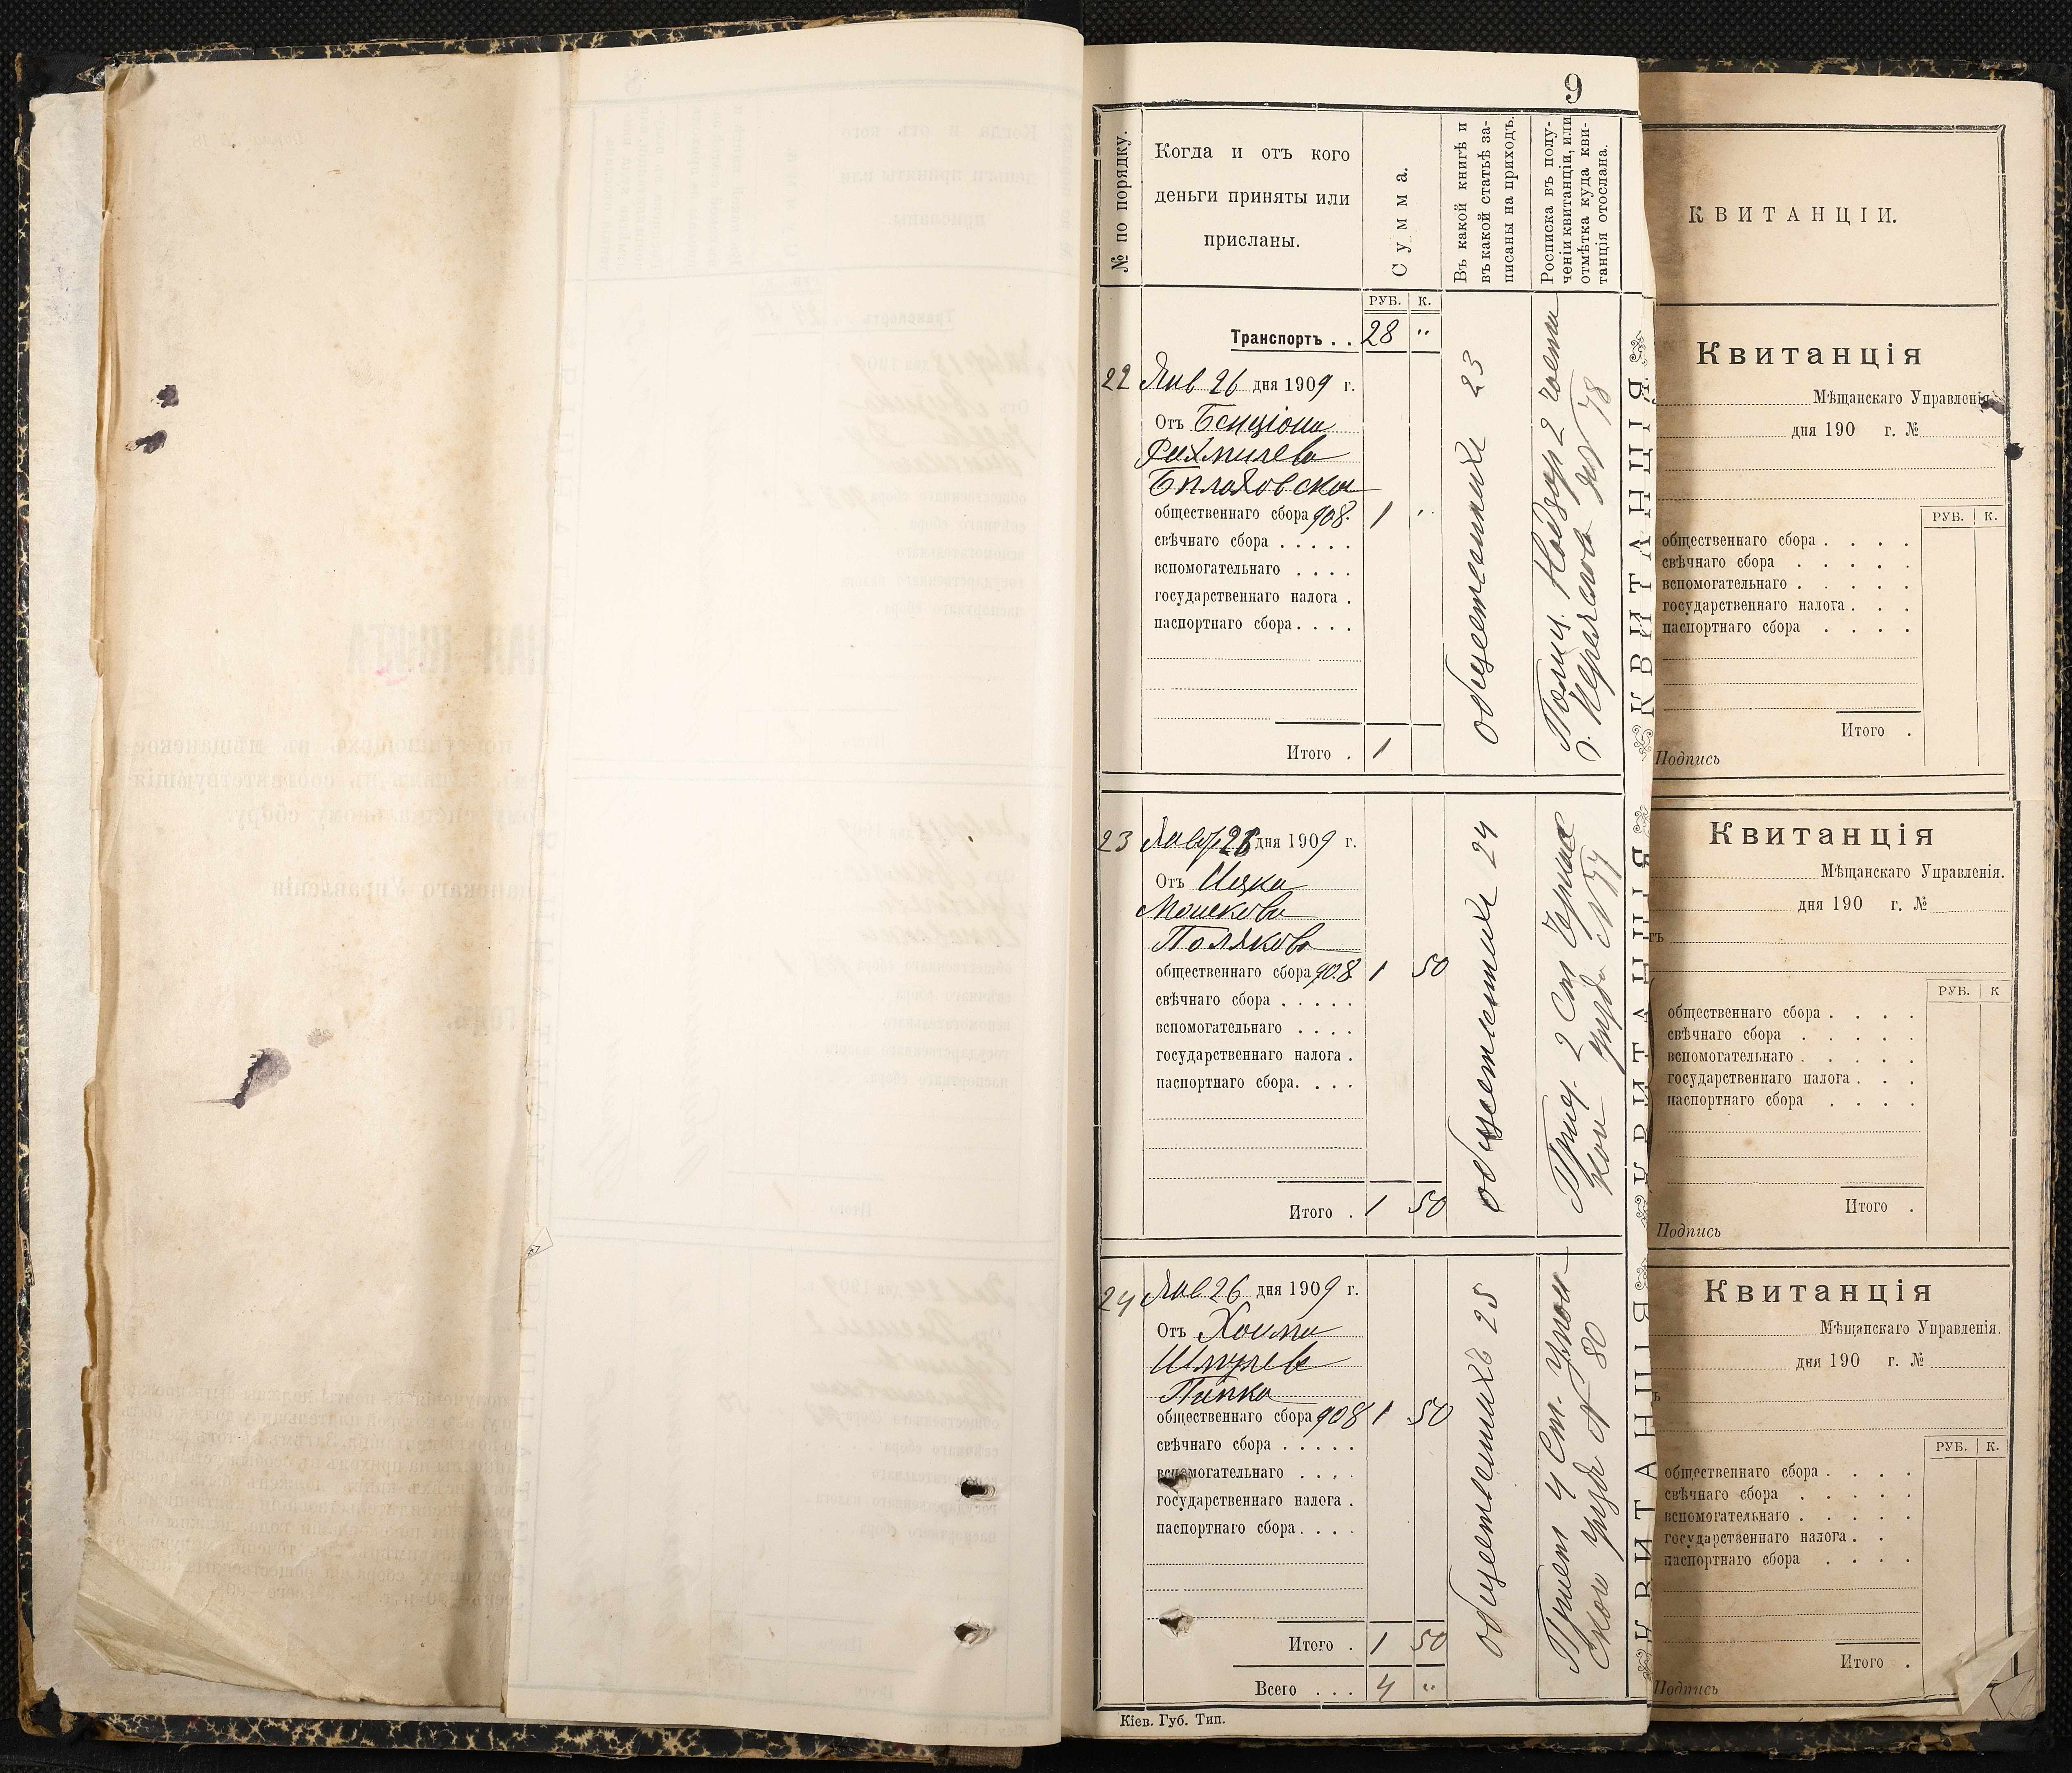 9
№ по порядку.
Когда и отъ кого
деньги приняты или
присланы.
Сумма.
Въ какой книгѣ и
въ какой статьѣ за-
писаны на приходъ.
Росписка въ полу-
ченіи квитанціи, или
отмѣтка куда кви-
танція отослана.
РУБ. К.
Транспортъ . . 28 "
22 Янв 26 дня 1909 г.
Отъ Бенціона
Рахмилева
общественнаго сбора 908. 1 "
свѣчнаго сбора . . . . .
вспомогательнаго . . . .
государственнаго налога .
паспортнаго сбора . . . .
Итого . 1
общественнихъ 23
г. Переяслова № 78
23 Янвр 26 дня 1909 г.
Отъ Ицка
Мошкова
Полякова
общественнаго сбора 908 1 50
свѣчнаго сбора . . . . .
вспомогательнаго . . . .
государственнаго налога .
паспортнаго сбора. . . .
Итого . 1 50
общественнихъ 24
уѣзда № 77
24 Янв 26 дня 1909 г.
Отъ Хаима
Шмулева
Пинка
общественнаго сбора 908 1 50
свѣчнаго сбора . . . . .
вспомогательнаго . . . .
государственнаго налога .
паспортнаго сбора . . . .
Итого . 1 50
Всего . . . 4 "
общественнихъ 25
скаго уѣзда № 80
Кіев. Губ. Тип.
КВИТАНЦІЯ
КВИТАНЦІЯ
КВИТАНЦІЯ
КВИТАНЦІИ.
Квитанція
Мѣщанскаго Управленія
дня 190 г. №
РУБ. К.
общественнаго сбора . . . .
свѣчнаго сбора . . . . .
вспомогательнаго . . . . .
государственнаго налога . . .
паспортнаго сбора . . . .
Итого .
Подпись
Квитанція
Мѣщанскаго Управленія.
дня 190 г. №
РУБ. К
общественнаго сбора . . . .
свѣчнаго сбора . . . . .
вспомогательнаго . . . . .
государственнаго налога . . .
паспортнаго сбора . . . .
Итого .
Подпись
Квитанція
Мѣщанскаго Управленія.
дня 190 г. №
РУБ. К.
общественнаго сбора . . . .
свѣчнаго сбора . . . . .
вспомогательнаго . . . . .
государственнаго налога . .
паспортнаго сбора . . . .
Итого .
Подпись